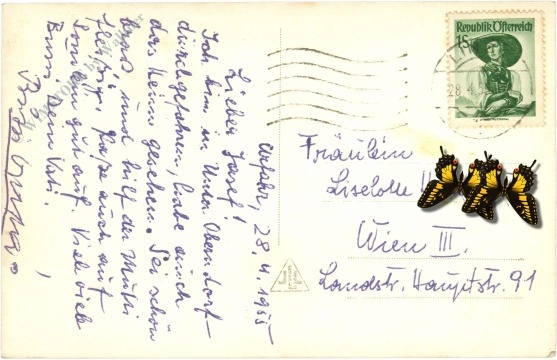 Urfahr, 28.4.1955
Liebes Haserl!
Ich bin in Unter Oberndorf
durchgefahren, habe auch
das Heim gesehen. Sei schön
brav und hilf der Mutti
Passe auch auf
gut auf. Viele viele
Bussi Dein Vati.
Republik Österreich
1S
28.4.5
Fräulein
Liselotte
Wien III.
Landstr. Hauptstr. 91